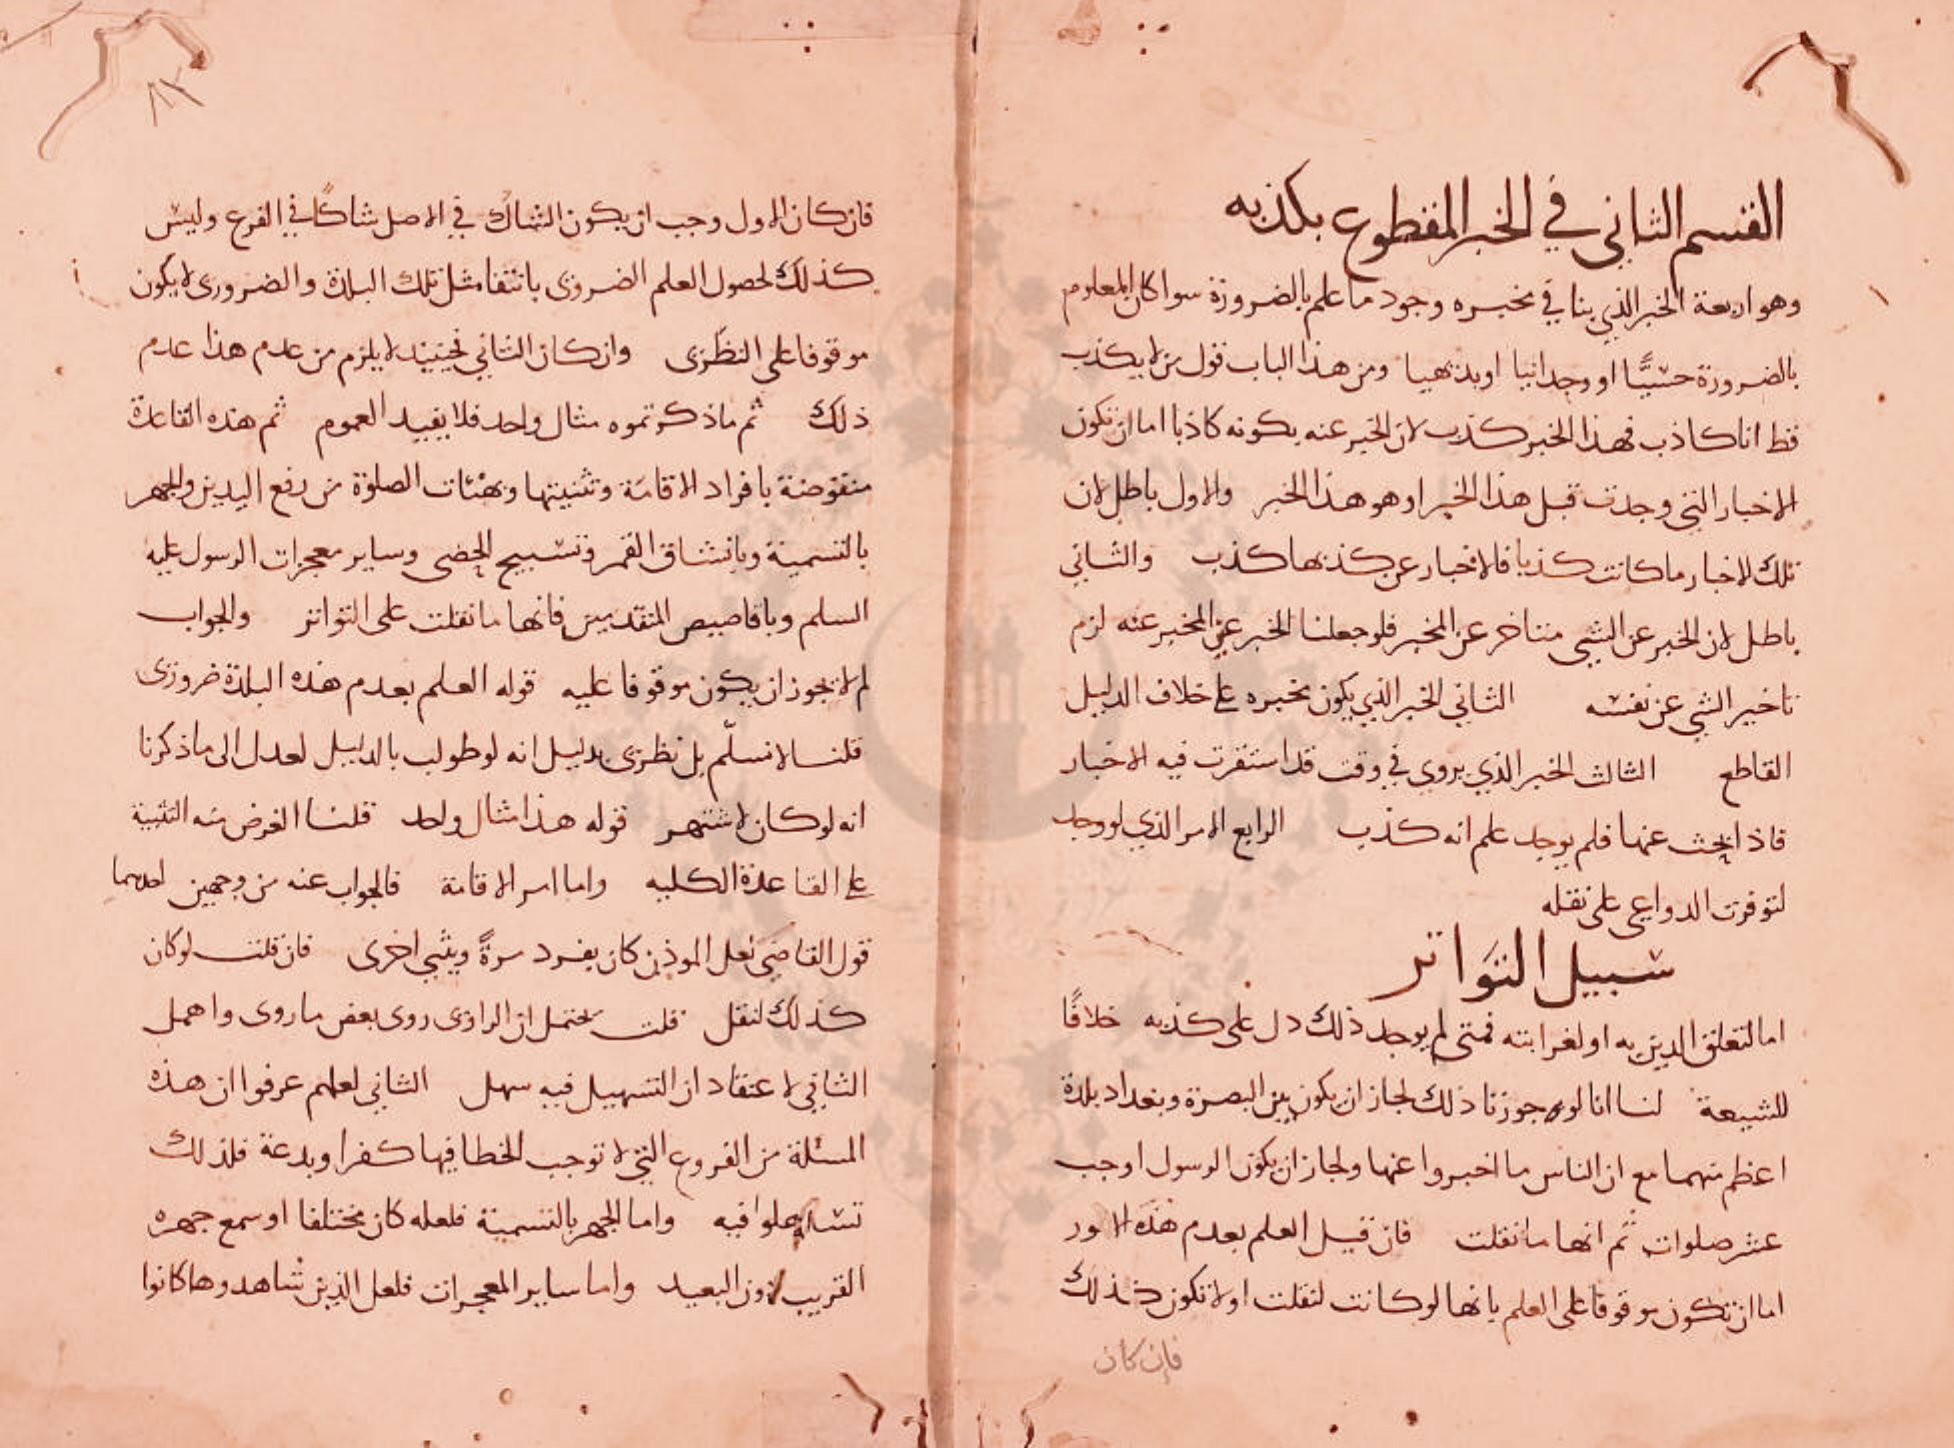 القسم الثاني في الخبر المقطوع بكذبه
وهو اربعة الخبر الذي ينافي مخبره وجود ما علم بالضرورة سوا كان المعلوم
بالضرورة حسيًّا او وجدانيا او بديهيا ومن هذا الباب قول من لا يكذب
قط انا كاذب فهذا الخبر كذب لان الخبر عنه بكونه كاذبا اما ان تكون
الاخبار التي وجدت قبل هذا الخبر او هو هذا الخبر والاول باطل لان
تلك الاخبار ما كانت كذبا فالاخبار عن كذبها كذب والثاني
باطل لان الخبر عن الشي متاخر عن المخبر فلو جعلنا الخبر عين المخبر عنه لزم
تاخير الشي عن نفسه الثاني الخبر الذي يكون مخبره على خلاف الدليل
القاطع الثالث الخبر الذي يروى في وقت قد استقرت فيه الاخبار
فاذا بحث عنها فلم يوجد علم انه كذب الرابع الامر الذي لو وجد
لتوفرت الدواعي على نقله
سبيل التواتر
اما لتعلق الدين به او لغرابته فمتى لم يوجد ذلك دل على كذبه خلافًا
للشيعة لنا انا لو جوزنا ذلك لجاز ان يكون بين البصرة وبغداد بلدة
اعظم منهما مع ان الناس ما اخبروا عنها ولجاز ان يكون الرسول اوجب
عشر صلوات ثم انها ما نقلت فان قيل العلم بعدم هذه الامور
اما ان تكون موقوفا على العلم بانها لو كانت لنقلت او لا تكون كذلك
فإن كان
٨٢
فان كان الاول وجب ان يكون الشاك في الاصل شاكًا في الفرع وليس
كذلك لحصول العلم الضروري بانتفا مثل تلك البلدة والضروري لا يكون
موقوفا على النظري وان كان الثاني فحينيذ لا يلزم من عدم هذا عدم
ذلك ثم ما ذكرتموه مثال واحد فلا يفيد العموم ثم هذه القاعدة
منقوضة بافراد الاقامة وتثنيتها وهئات الصلوة من رفع اليدين والجهر
بالتسمية وبانشقاق القمر وتسبيح الحصى وساير معجزات الرسول عليه
السلم وباقاصيص المتقدمين فانها ما نقلت على التواتر والجواب
لم لا يجوز ان يكون موقوفا عليه قوله العلم بعدم هذه البلدة ضروري
قلنا لا نسلّم بل نظري بدليل انه لو طولب بالدليل لعدل الى ما ذكرنا
انه لو كان لاشتهر قوله هذا مثال واحد قلنا الغرض منه التنبيه
على القاعدة الكلية واما امر الاقامة فالجواب عنه من وجهين احدهما
قول القاضي لعل الموذن كان يفرد مرةً ويثني اخرى فان قلت لو كان
كذلك لنقل قلت يحتمل ان الراوي روى بعض ما روى واهمل
الثاني لاعتقاد ان التسهيل فيه سهل الثاني لعلهم عرفوا ان هذه
المسئلة من الفروع التي لا توجب الخطا فيها كفرا وبدعة فلذلك
تساهلوا فيه واما الجهر بالتسمية فلعله كان مختلفا او سمع جهره
القريب دون البعيد واما ساير المعجزات فلعل الذين شاهدوها كانوا